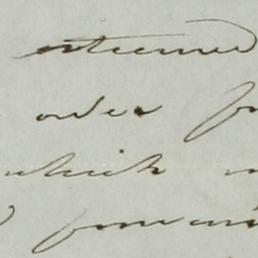 esteemed
order for
which
forward